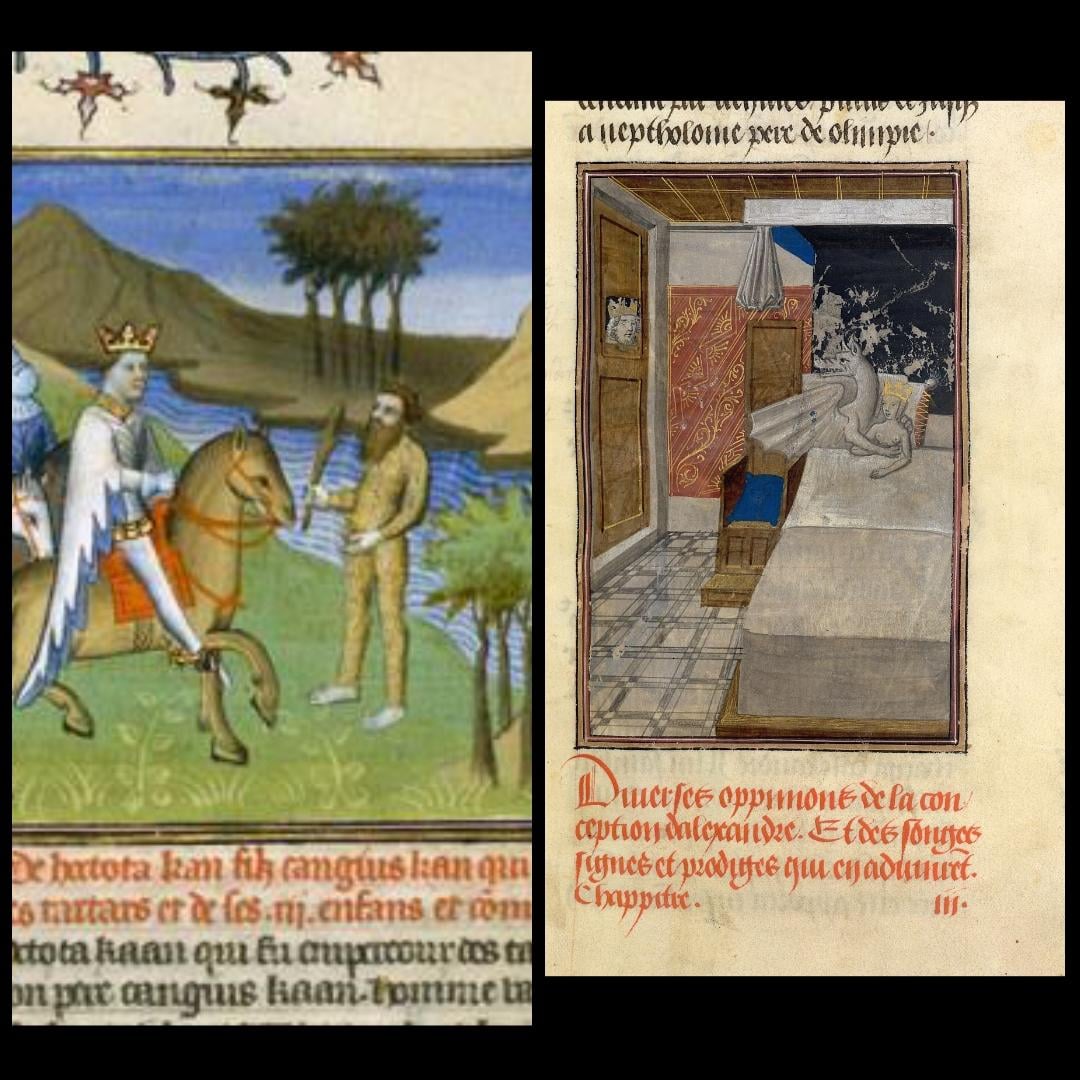 De hatota kan filz cangius kan qui
es tartars et de ses .iij. enfans et com
atota kaan qui fu empereour des ta
on pere cangius kaan. homme
a neptholome pere de olimpie.
Diuerses oppinions de la con
ception dalexandre. Et des songes
signes et prodiges qui en aduinrēt.
Chappitre. iii.